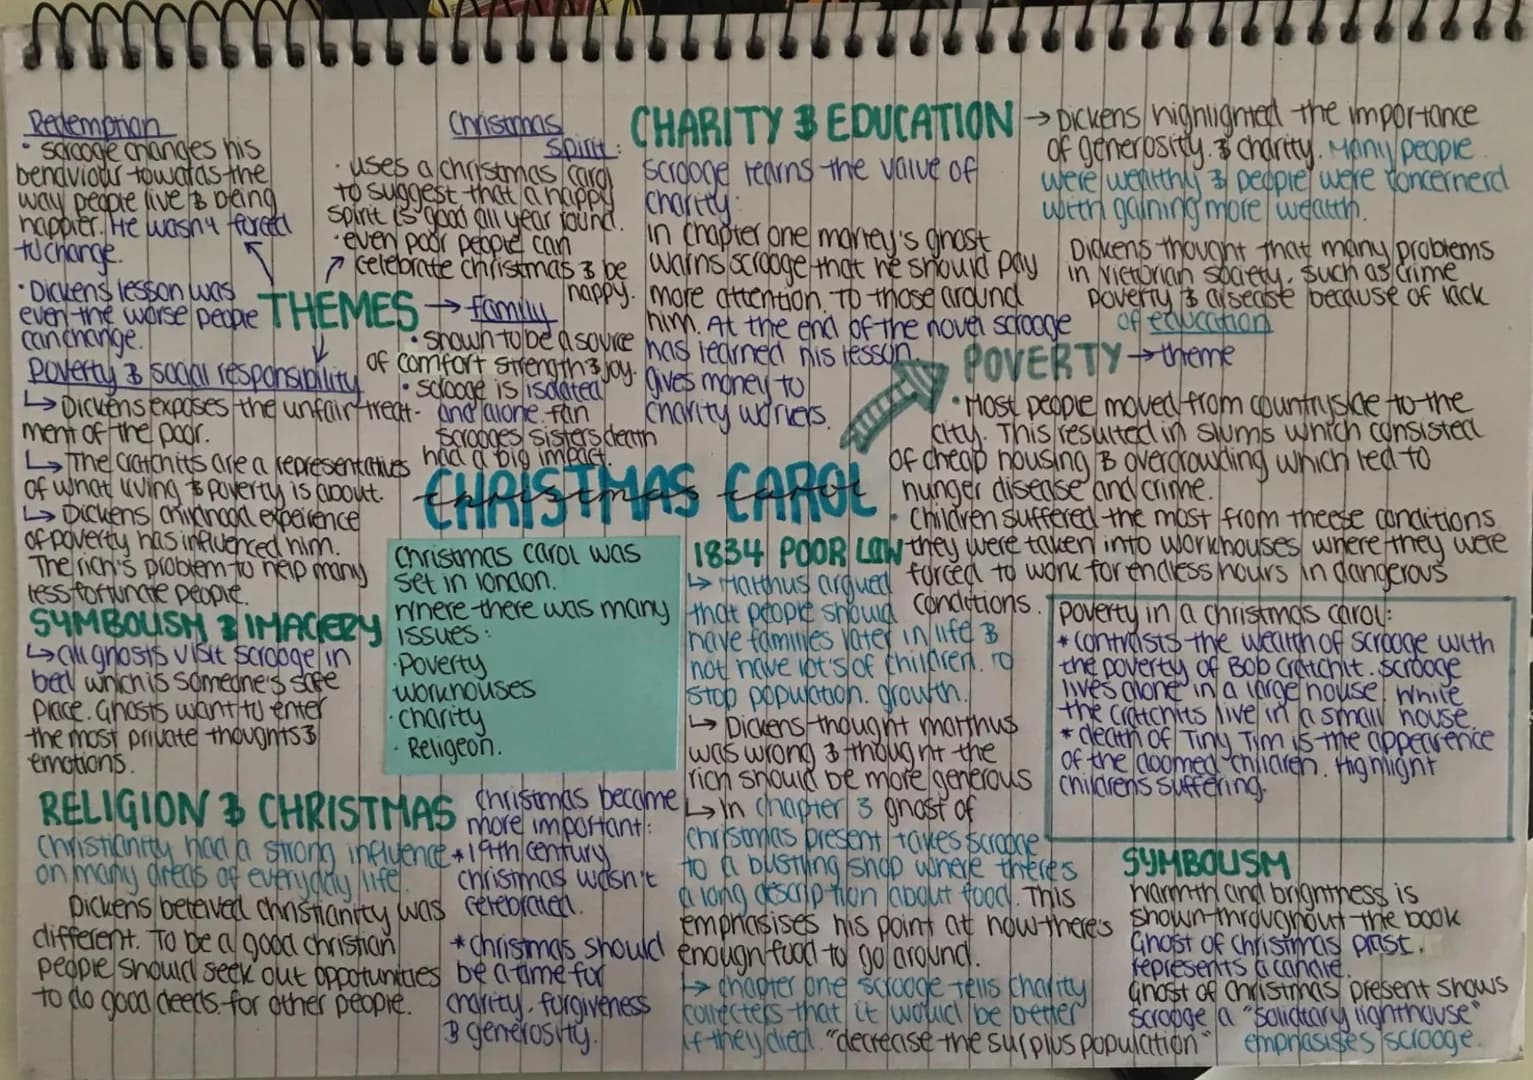 Redemption
• scrooge changes his
behaviour towards the
way people live & being
happier. He wasn't forced
to change.
• Dickens lesson was
even the worse people
can change.
Christmas
Spirit:
• uses a christmas carol
to suggest that a happy
spirit is good all year round.
• even poor people can
celebrate christmas & be
happy.
THEMES → family
• shown to be a source
of comfort strength & joy.
• scrooge is isolated
and alone. fan
scrooges sisters death
had a big impact.
Poverty & social responsibility
↳ Dickens exposes the unfair treat-
ment of the poor.
↳ The cratchits are a representatives
of what living & poverty is about.
↳ Dickens childhood experience
of poverty has influenced him.
The rich's problem to help many
less fortunate people.
CHARITY & EDUCATION → Dickens highlighted the importance
of generosity & charity. Many people
were wealthy & people were concernerd
with gaining more wealth.
Dickens thought that many problems
in victorian society, such as crime
poverty & disease because of lack
of education
scrooge learns the value of
charity:
in chapter one marley's ghost
warns scrooge that he should pay
more attention to those around
him. At the end of the novel scrooge
has learned his lesson.
gives money to
charity workers.
POVERTY → theme
• Most people moved from countryside to the
city. This resulted in slums which consisted
of cheap housing & overcrowding which led to
hunger disease and crime.
• Children suffered the most from theese conditions
they were taken into workhouses where they were
forced to work for endless hours in dangerous
conditions.
CHRISTMAS CAROL
christmas carol
christmas carol was
set in london.
where there was many
issues:
• Poverty
workhouses
• charity
• Religeon.
SYMBOLISM & IMAGERY
↳ all ghosts visit scrooge in
bed which is someone's safe
place. Ghosts want to enter
the most private thoughts &
emotions.
1834 POOR LAW
↳ Malthus argued
that people should
have families later in life &
not have lot's of children. To
stop population growth.
↳ Dickens thought malthus
was wrong & thought the
rich should be more generous
↳ In chapter 3 ghost of
christmas present takes scrooge
to a bustling shop where there's
a long description about food. This
emphasises his point at how there's
enough food to go around.
↳ chapter one scrooge tells charity
collecters that it would be better
if they died. "decrease the surplus population"
poverty in a christmas carol:
* contrasts the wealth of scrooge with
the poverty of Bob cratchit. scrooge
lives alone in a large house while
the cratchits live in a small house.
* death of Tiny Tim is the appearence
of the doomed children. Highlight
childrens suffering.
RELIGION & CHRISTMAS
Christianity had a strong influence
on many areas of everyday life.
Dickens beleived christianity was
different. To be a good christian
people should seek out oppotunities
to do good deeds for other people.
christmas became
more important:
* 19th century
christmas wasn't
celebrated.
* christmas should
be a time for
charity, forgiveness
& generosity.
SYMBOLISM
warmth and brightness is
shown throughout the book
Ghost of christmas past.
represents a candle.
Ghost of christmas present shows
scrooge a "solidtary lighthouse"
emphasises scrooge.